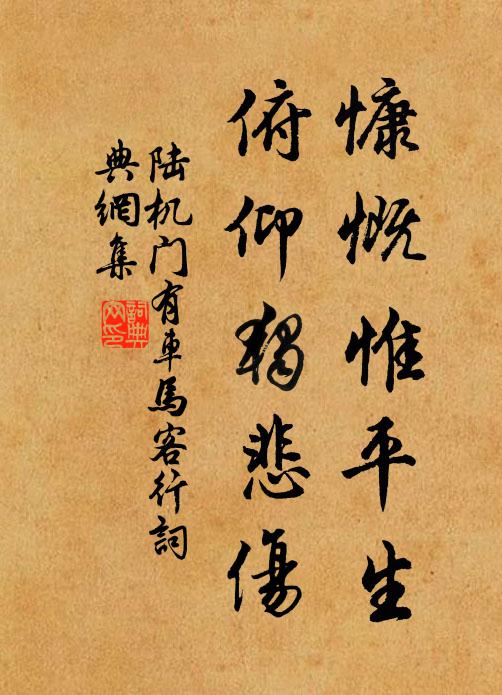 慷慨惟平生
俯仰独悲傷
陆机门有車馬客行詞
典網集
詞典
网印